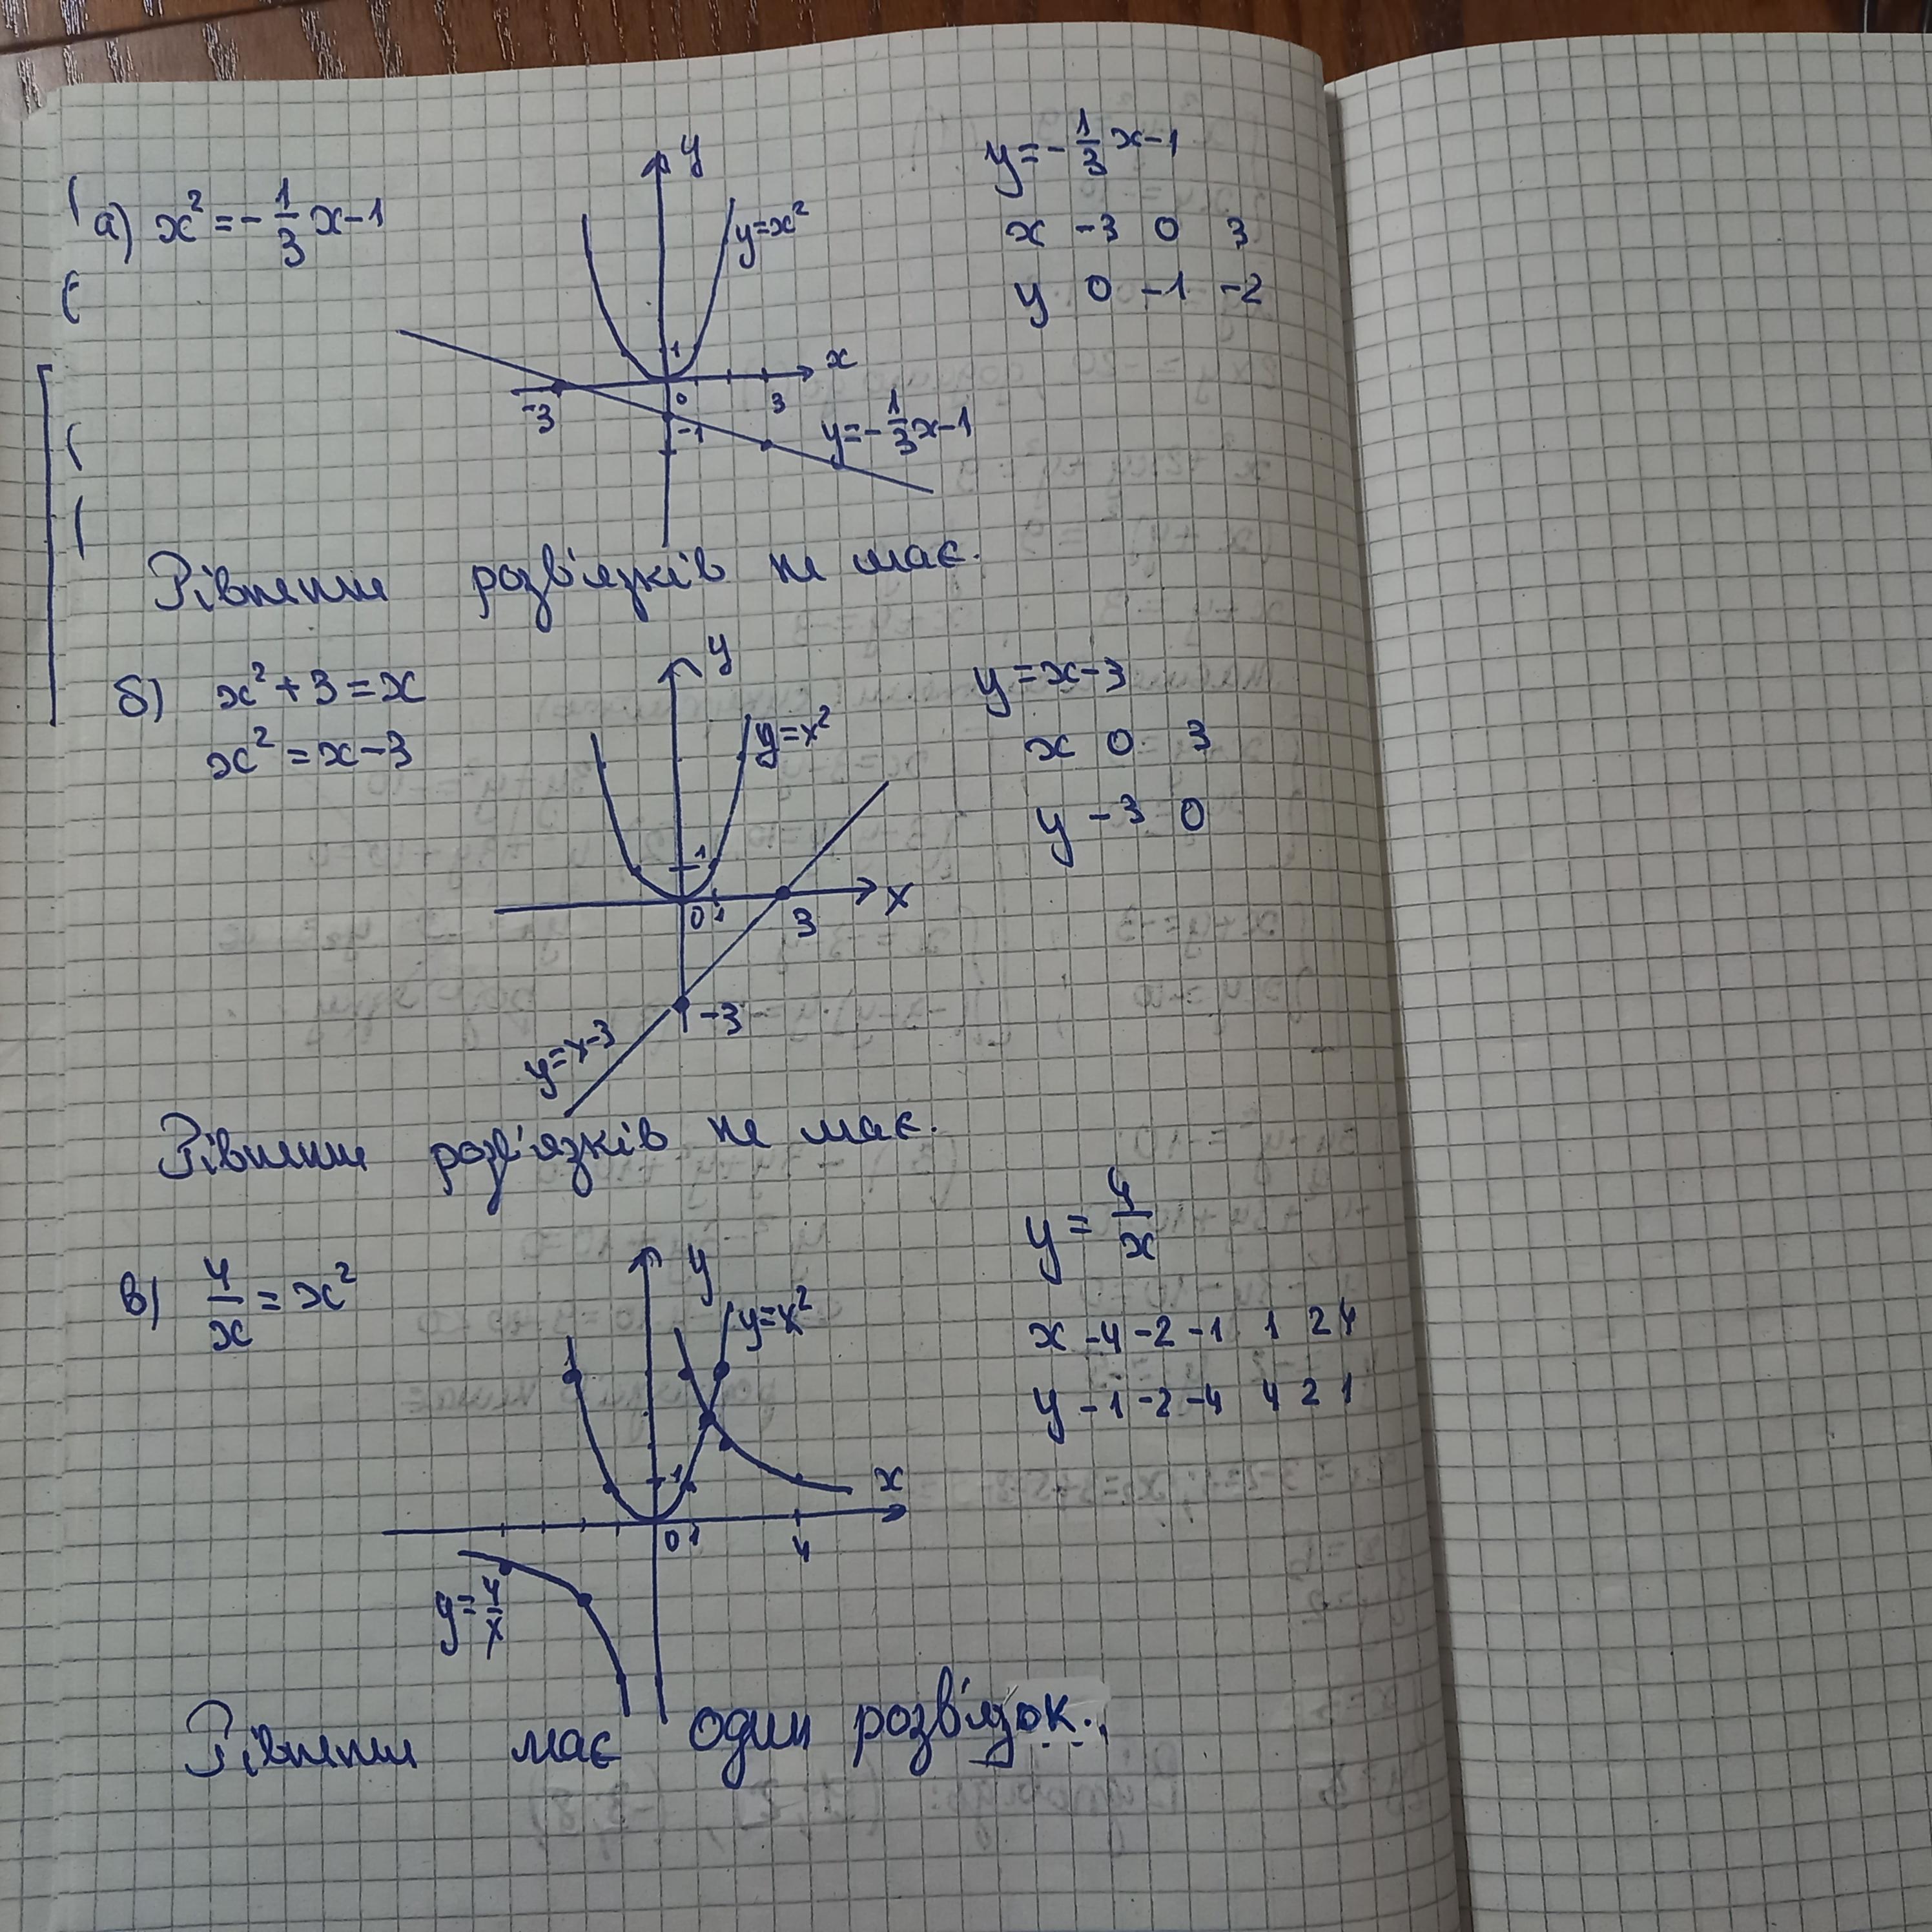 а) x² = -1/3 x - 1
y
y=x²
1
x
-3
0
3
-1
y=-1/3 x-1
y = -1/3 x - 1
x -3 0 3
y 0 -1 -2
Рівняння розв'язків не має.
б) x² + 3 = x
x² = x - 3
y
y=x²
1
0 1
3
x
-3
y=x-3
y = x - 3
x 0 3
y -3 0
Рівняння розв'язків не має.
в) 4/x = x²
y
y=x²
1
x
0 1
4
y=4/x
y = 4/x
x -4 -2 -1 1 2 4
y -1 -2 -4 4 2 1
Рівняння має один розв'язок.